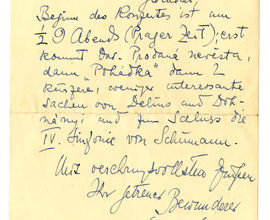 Beginn des Konzertes ist um
½ 9 Abends (Prager Zeit); erst
kommt Ouv. Prodaná nevěsta,
dann „Pohádka“ dann 2
kürzere, weniger interessante
Sachen von Delius und Doh-
nányi und zum Schluss die
IV. Sinfonie von Schumann.
Mit verehrungsvollsten Grüßen
Ihr getreuer Bewunderer